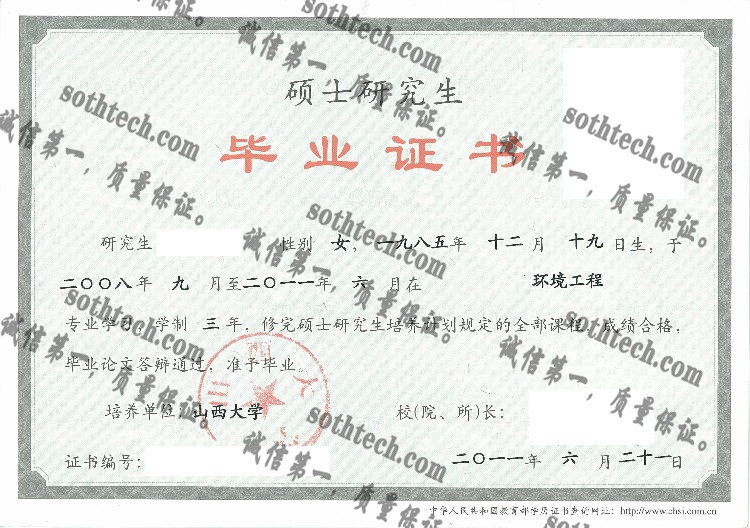 硕士研究生
毕业证书
研究生 性别 女，一九八五年 十二月 十九日生，于
二〇〇八年 九 月至二〇一一年 六 月在 环境工程
专业学习，学制 三 年，修完硕士研究生培养计划规定的全部课程，成绩合格，
毕业论文答辩通过，准予毕业。
培养单位：山西大学 校(院、所)长：
证书编号： 二〇一一年 六 月 二十一日
中华人民共和国教育部学历证书查询网址：http://www.chsi.com.cn
sothtech.com
诚信第一，质量保证。
sothtech.com
诚信第一，质量保证。
sothtech.com
诚信第一，质量保证。
sothtech.com
诚信第一，质量保证。
sothtech.com
诚信第一，质量保证。
sothtech.com
诚信第一，质量保证。
sothtech.com
诚信第一，质量保证。
sothtech.com